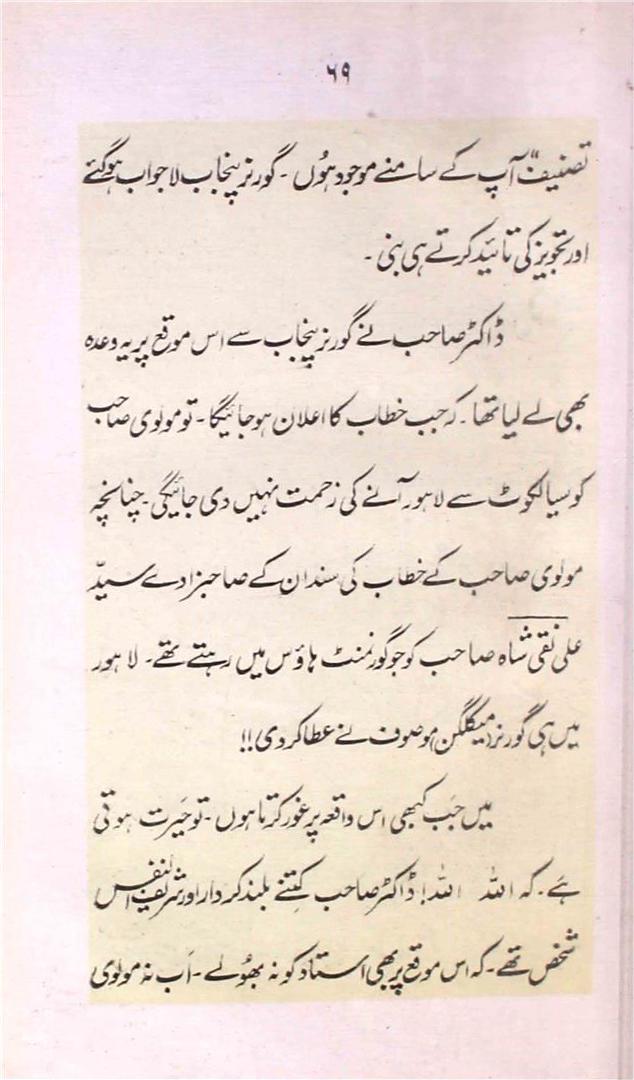 ۶۹
تصنیف" آپ کے سامنے موجود ہُوں - گورنر پنجاب لاجواب ہوگئے
اور تجویز کی تائید کرتے ہی بنی -
ڈاکٹر صاحب نے گورنر پنجاب سے اس موقع پر یہ وعدہ
بھی لے لیا تھا - کہ جب خطاب کا اعلان ہو جائیگا - تو مولوی صاحب
کو سیالکوٹ سے لاہور آنے کی زحمت نہیں دی جائیگی - چنانچہ
مولوی صاحب کے خطاب کی سند ان کے صاحبزادے سیّد
علی نقی شاہ صاحب کو جو گورنمنٹ ہاؤس میں رہتے تھے - لاہور
میں ہی گورنر (میکلگن) موصوف نے عطا کر دی !!
میں جَب کبھی اس واقعہ پر غور کرتا ہوں - تو حَیرت ہوتی
ہَے - کہ اللہ اللہ! ڈاکٹر صاحب کِتنے بلند کردار اور شریف النفس
شخص تھے - کہ اس موقع پر بھی استاد کو نہ بھُولے - اَب نہ مولوی